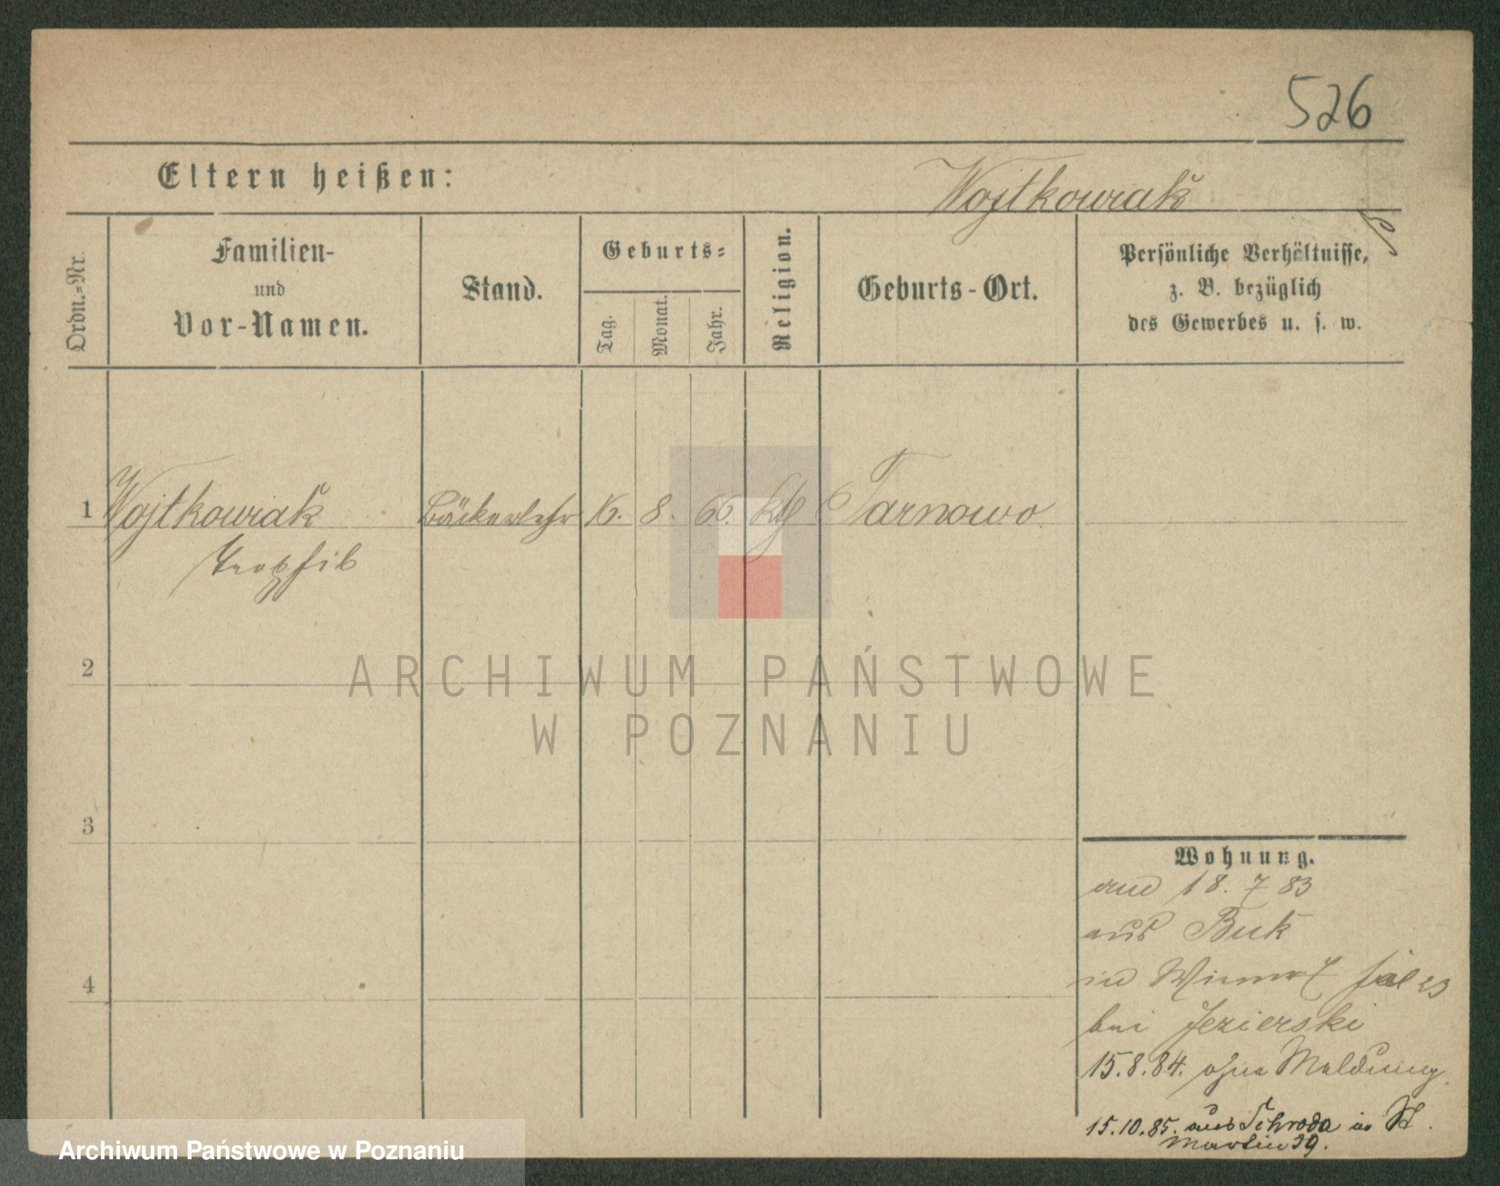 526
Eltern heißen:
Wojtkowiak
Ordn.-Nr.
Familien-
und
Vor-Namen.
Stand.
Geburts-
Tag.
Monat.
Jahr.
Religion.
Geburts-Ort.
Persönliche Verhältnisse,
z. B. bezüglich
des Gewerbes u. s. w.
1 Wojtkowiak Bäckerlehr 16. 8. 66. kth Tarnowo
2
ARCHIWUM PAŃSTWOWE
W POZNANIU
3
Wohnung.
18. 7 83
aus Buk
4
in
bei Jezierski
15.8.84. ohne Meldung.
15.10.85. aus Schroda in St.
Martin 39.
Archiwum Państwowe w Poznaniu